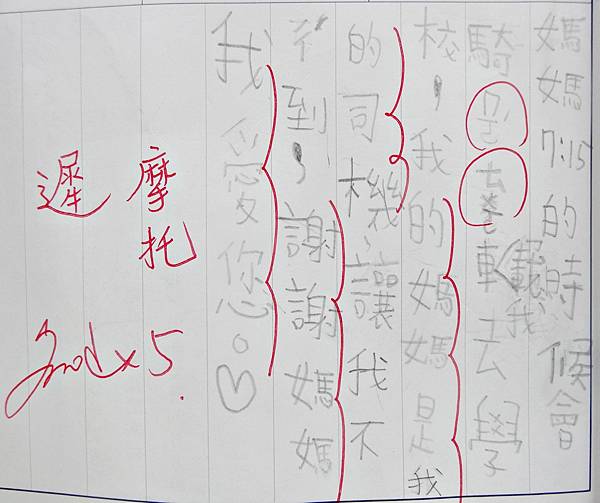 媽媽7:15的時候會
騎車載我去學
校，我的媽媽是我
的司機，讓我不
ㄔˊ到，謝謝媽媽
我愛您。♡
摩托
遲
Good x5.